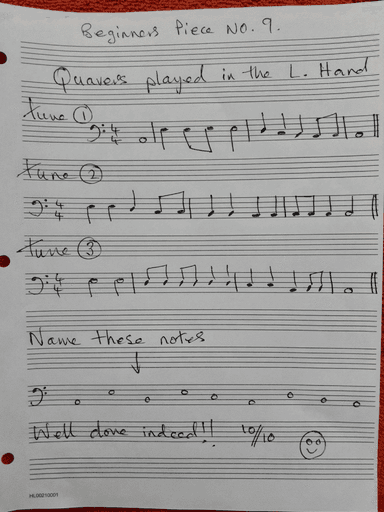 Beginners Piece No. 9.
Quavers played in the L. Hand
Tune ①
4/4
Tune ②
4/4
Tune ③
4/4
Name these notes
Well done indeed!! 10/10
HL00210001